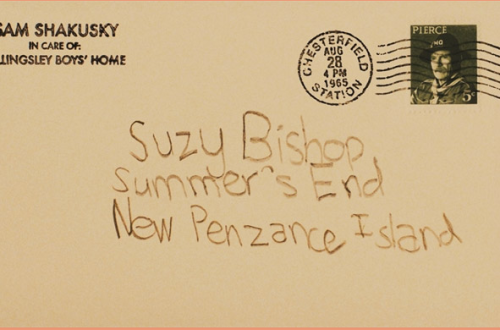 SAM SHAKUSKY
IN CARE OF:
LLINGSLEY BOYS' HOME
CHESTERFIELD
AUG
28
4 PM
1965
STATION
PIERCE
5¢
Suzy Bishop
Summer's End
New Penzance Island